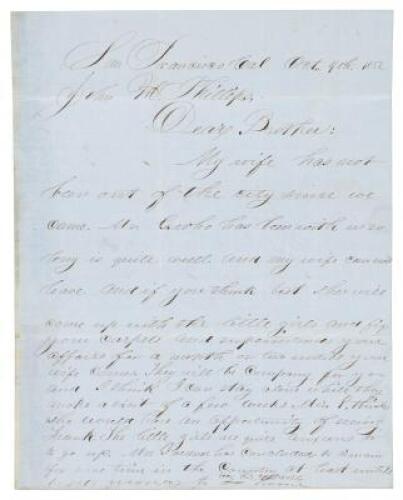 San Francisco Cal Oct. 9th
John M Phillips
Dear Brother:
My wife has not
been out of the city since we
came. Mr has been with us so
long is quite well and my wife can
leave and if you think best She will
come up with the little girls and fix
your carpets and superintend your
affairs for a month or two until your
wife comes They will be Company for you
and I think I can stay alone while they
make a visit of a few weeks Mrs P. thinks
she would have an opportunity of seeing
Frank. The little girls are quite anxious
to go up. Mr has concluded to remain
for some time in the Country at least until
to